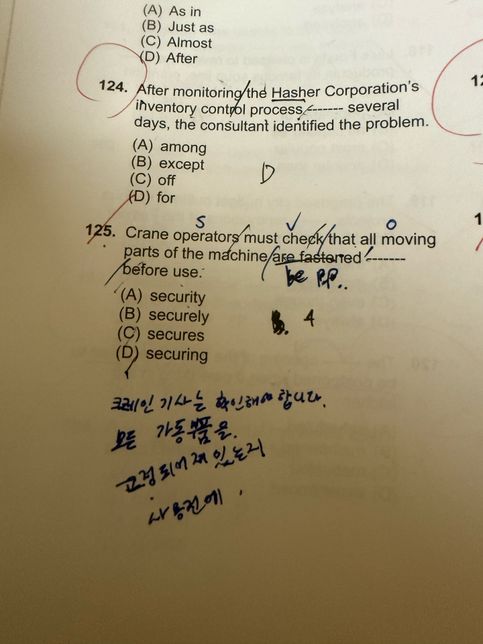 (A) As in
(B) Just as
(C) Almost
(D) After
124. After monitoring the Hasher Corporation's
inventory control process ------- several
days, the consultant identified the problem.
(A) among
(B) except
(C) off
(D) for
D
S V O
125. Crane operators must check that all moving
parts of the machine are fastened -------
before use.
be p.p..
(A) security
(B) securely
(C) secures
(D) securing
4
크레인 기사는 확인해야 합니다.
모든 가동부품을.
고정되어져 있는지
사용전에.
12
1